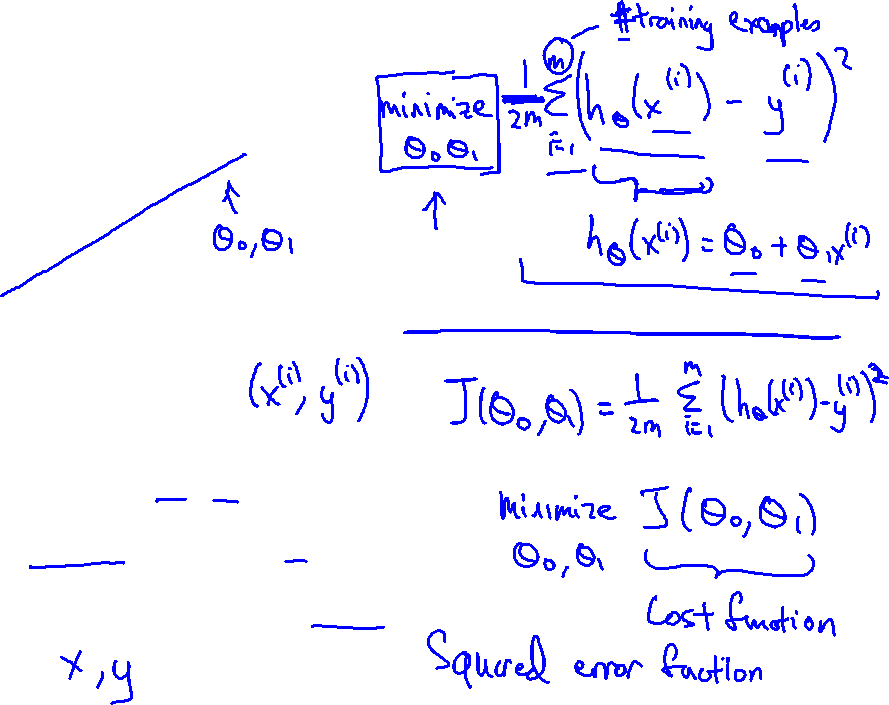 #training examples
minimize θ₀ θ₁ 1/2m Σ_{i=1}^{m} (h_θ(x^(i)) - y^(i))²
θ₀, θ₁
h_θ(x^(i)) = θ₀ + θ₁x^(i)
(x^(i), y^(i))
J(θ₀, θ₁) = 1/2m Σ_{i=1}^{m} (h_θ(x^(i)) - y^(i))²
minimize θ₀, θ₁ J(θ₀, θ₁)
Cost function
x, y
Squared error faction